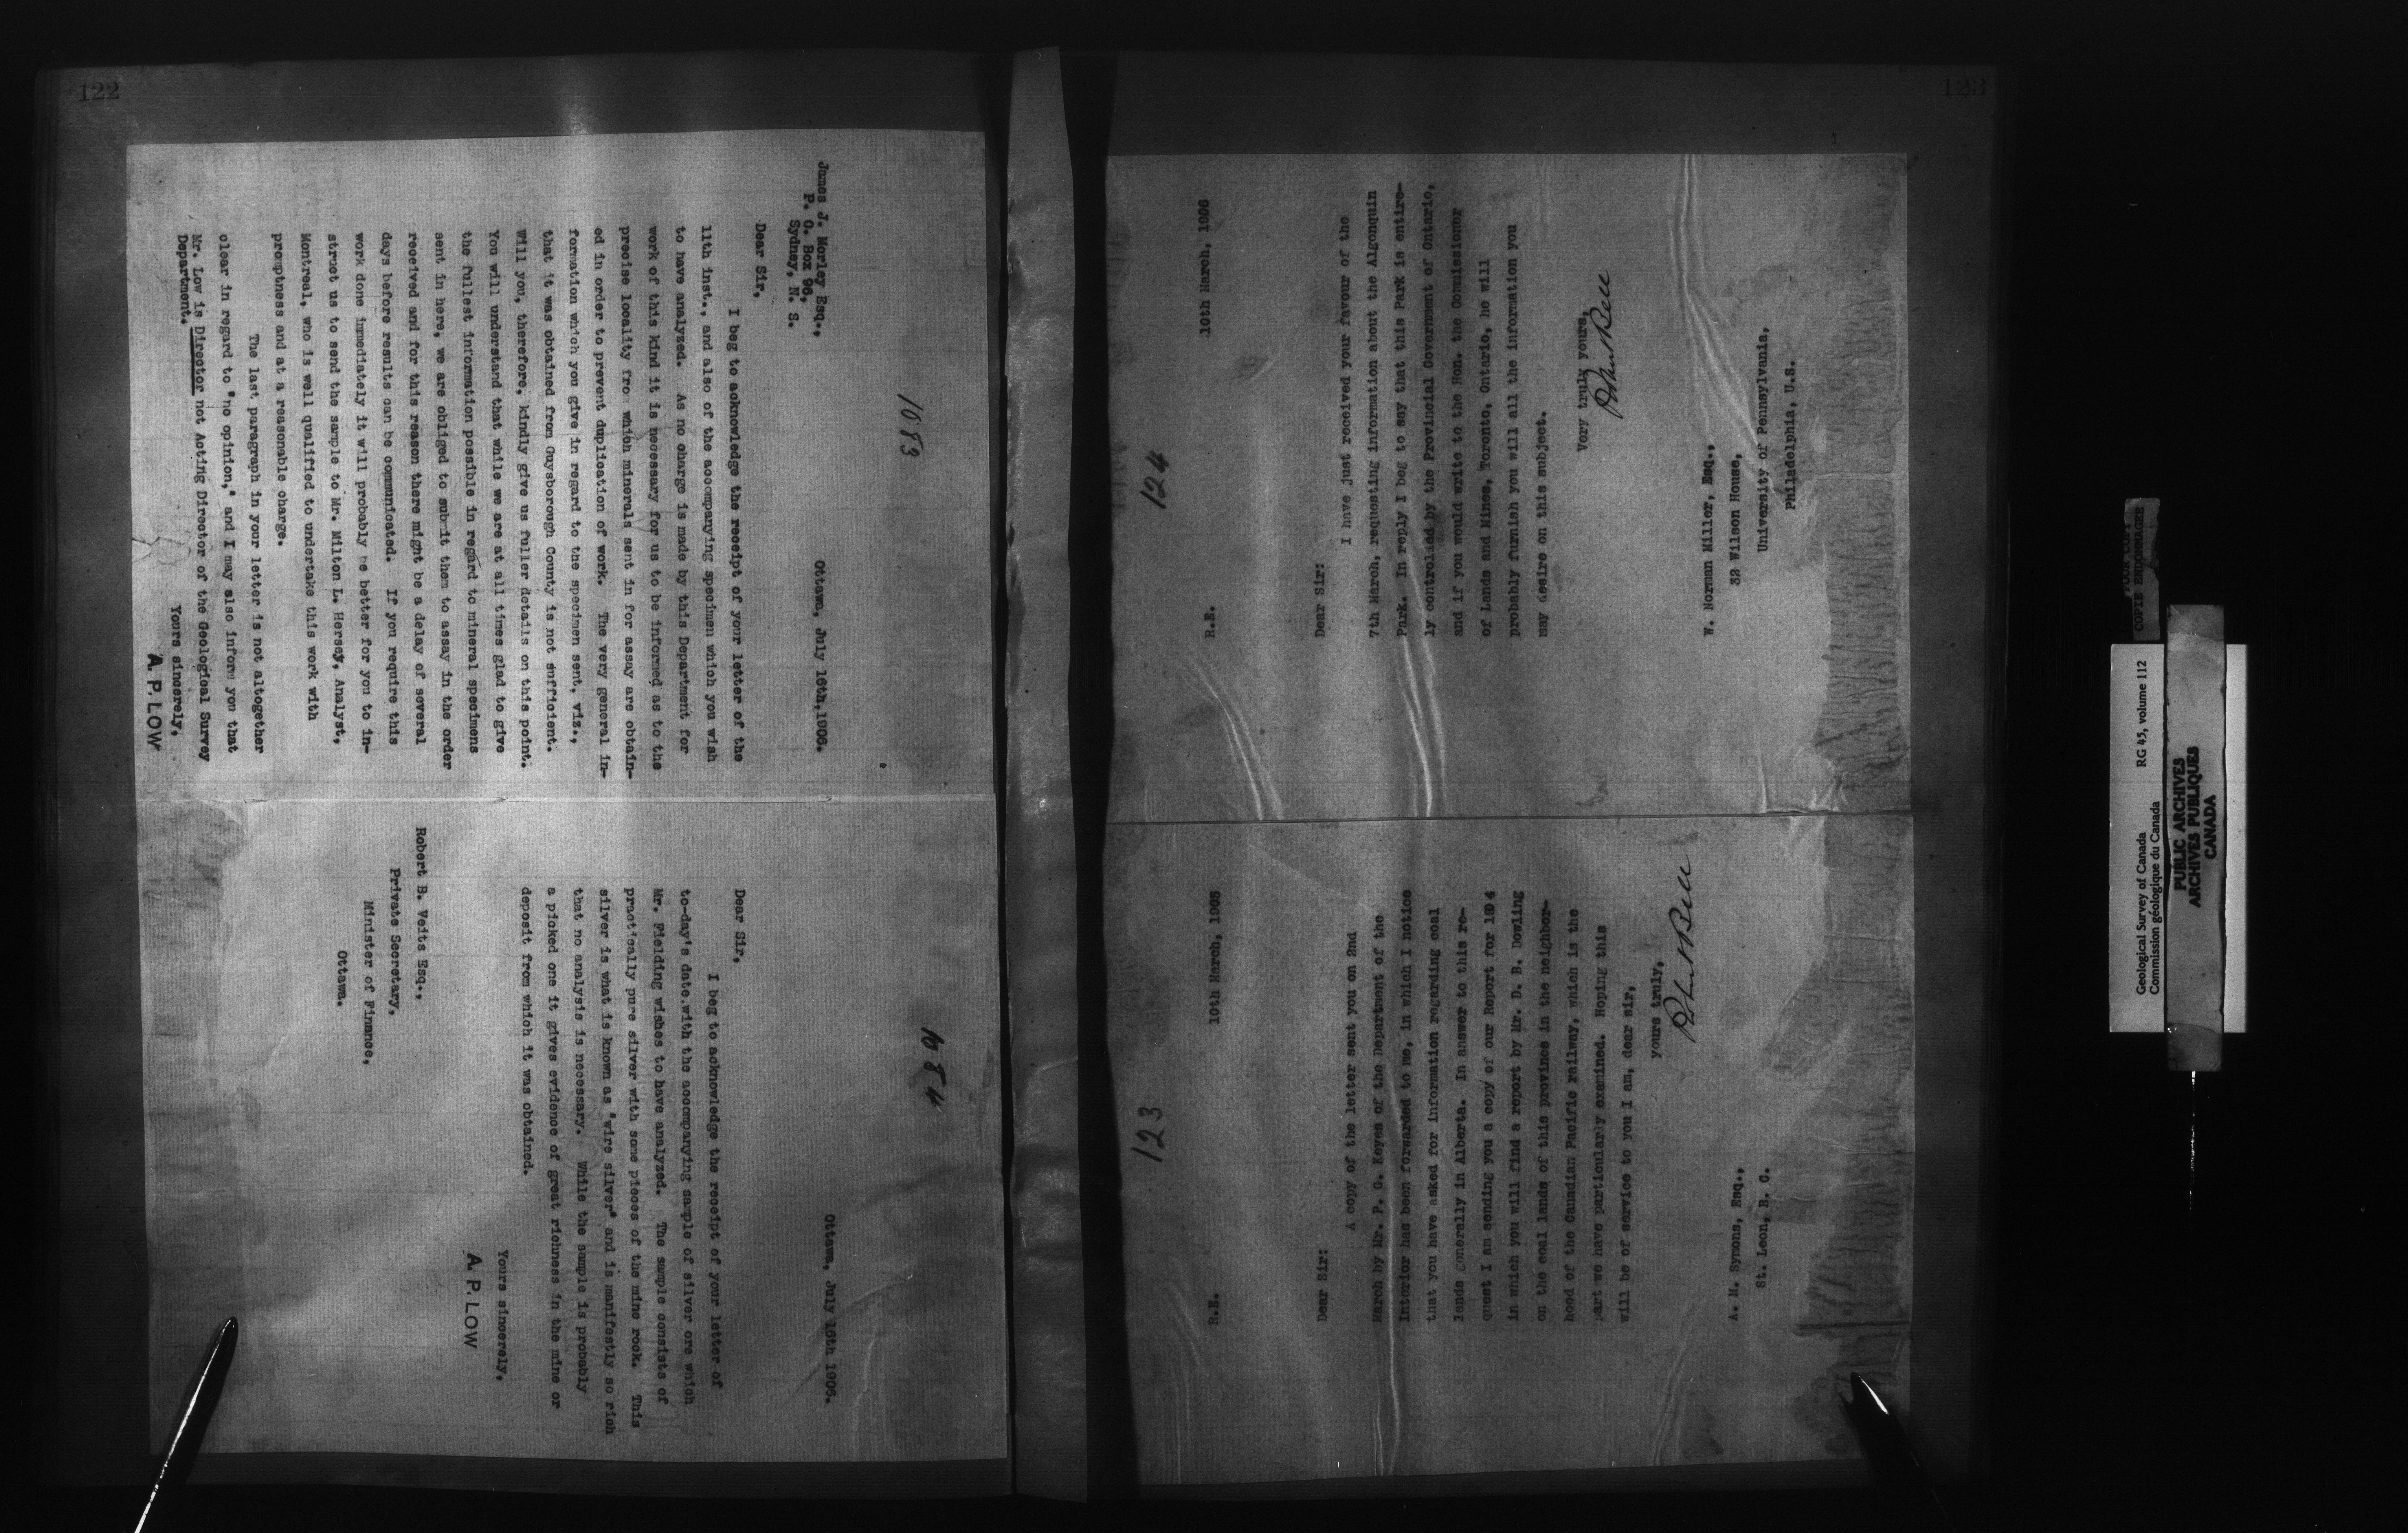 122
1083
Ottawa, July 16th, 1906.
James J. Morley Esq.,
P. O. Box 96,
Sydney, N. S.
Dear Sir,
I beg to acknowledge the receipt of your letter of the
11th inst., and also of the accompanying specimen which you wish
to have analyzed. As no charge is made by this Department for
work of this kind it is necessary for us to be informed as to the
precise locality from which minerals sent in for assay are obtain-
ed in order to prevent duplication of work. The very general in-
formation which you give in regard to the specimen sent, viz.,
that it was obtained from Guysborough County is not sufficient.
Will you, therefore, kindly give us fuller details on this point.
You will understand that while we are at all times glad to give
the fullest information possible in regard to mineral specimens
sent in here, we are obliged to submit them to assay in the order
received and for this reason there might be a delay of several
days before results can be communicated. If you require this
work done immediately it will probably be better for you to in-
struct us to send the sample to Mr. Milton L. Hersey, Analyst,
Montreal, who is well qualified to undertake this work with
promptness and at a reasonable charge.
The last paragraph in your letter is not altogether
clear in regard to "no opinion," and I may also inform you that
Mr. Low is Director not Acting Director of the Geological Survey
Department.
Yours sincerely,
A. P. LOW
1084
Ottawa, July 16th 1906.
Dear Sir,
I beg to acknowledge the receipt of your letter of
to-day's date.with the accompanying sample of silver ore which
Mr. Fielding wishes to have analyzed. The sample consists of
practically pure silver with some pieces of the mine rock. This
silver is what is known as "wire silver" and is manifestly so rich
that no analysis is necessary. While the sample is probably
a picked one it gives evidence of great richness in the mine or
deposit from which it was obtained.
Yours sincerely,
A. P. LOW
Robert B. Veits Esq.,
Private Secretary,
Minister of Finance,
Ottawa.
123
123
R.E.
10th March, 1906
Dear Sir:
A copy of the letter sent you on 2nd
March by Mr. P. G. Keyes of the Department of the
Interior has been forwarded to me, in which I notice
that you have asked for information regarding coal
lands generally in Alberta. In answer to this re-
quest I am sending you a copy of our Report for 1904
in which you will find a report by Mr. D. B. Dowling
on the coal lands of this province in the neighbor-
hood of the Canadian Pacific railway, which is the
part we have particularly examined. Hoping this
will be of service to you I am, dear sir,
yours truly,
Robert Bell
A. H. Symons, Esq.,
St. Leon, B. C.
124
R.E.
10th March, 1906
Dear Sir:
I have just received your favour of the
7th March, requesting information about the Algonquin
Park. In reply I beg to say that this Park is entire-
ly controlled by the Provincial Government of Ontario,
and if you would write to the Hon. the Commissioner
of Lands and Mines, Toronto, Ontario, he will
probably furnish you will all the information you
may desire on this subject.
Very truly yours,
Robert Bell
W. Norman Miller, Esq.,
32 Wilson House,
University of Pennsylvania,
Philadelphia, U.S.
POOR COPY
COPIE ENDOMMAGEE
Geological Survey of Canada RG 45, volume 112
Commission géologique du Canada
PUBLIC ARCHIVES
ARCHIVES PUBLIQUES
CANADA